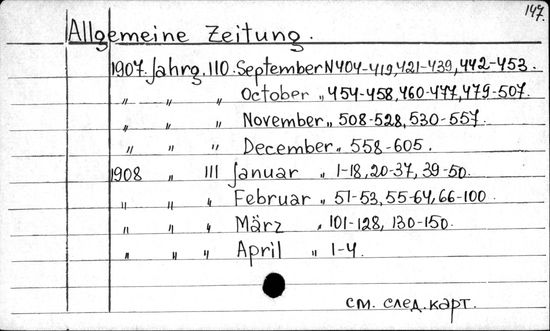 147.
Allgemeine Zeitung.
1907. Jahrg. 110. September N 404-419, 421-439, 442-453.
„ „ „ October „ 454-458, 460-477, 479-507.
„ „ „ November „ 508-528, 530-557.
„ „ „ December „ 558-605.
1908 „ 111 Januar „ 1-18, 20-37, 39-50.
„ „ „ Februar „ 51-53, 55-64, 66-100.
„ „ „ März „ 101-128, 130-150.
„ „ „ April „ 1-4.
см. след. карт.